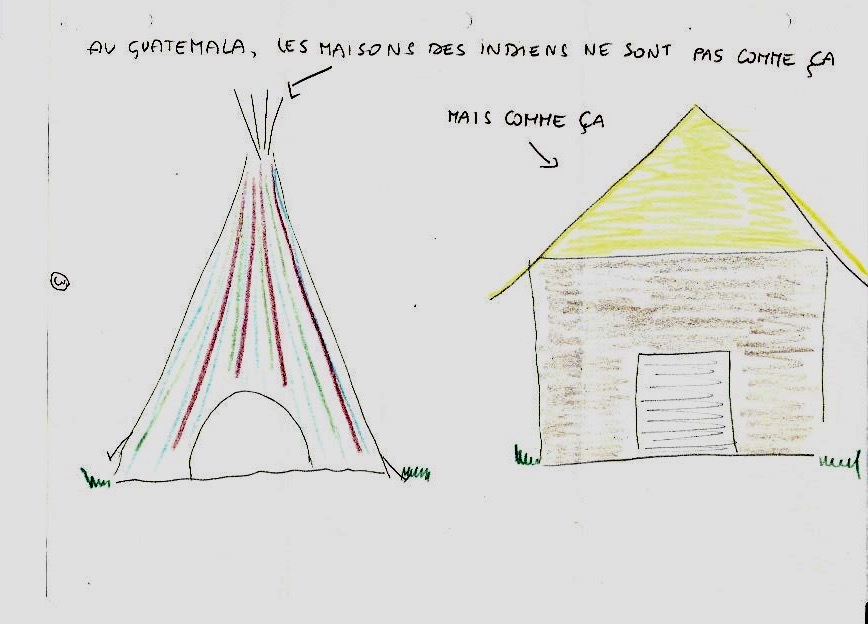 AU GUATEMALA, LES MAISONS DES INDIENS NE SONT PAS COMME ÇA
MAIS COMME ÇA
3